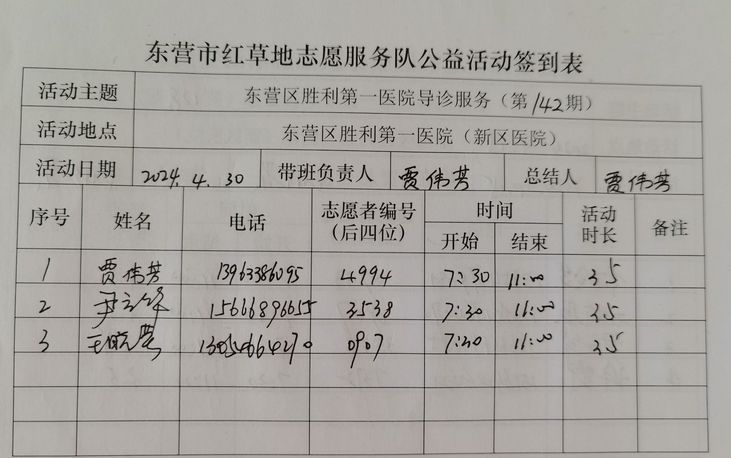 东营市红草地志愿服务队公益活动签到表
活动主题 东营区胜利第一医院导诊服务（第142期）
活动地点 东营区胜利第一医院（新区医院）
活动日期 2024.4.30 带班负责人 贾伟芳 总结人 贾伟芳
序号 姓名 电话 志愿者编号（后四位） 时间 开始 结束 活动时长 备注
1 贾伟芳 13963386095 4994 7:30 11:00 3.5
2 15666896655 3538 7:30 11:00 3.5
3 0907 7:30 11:00 3.5